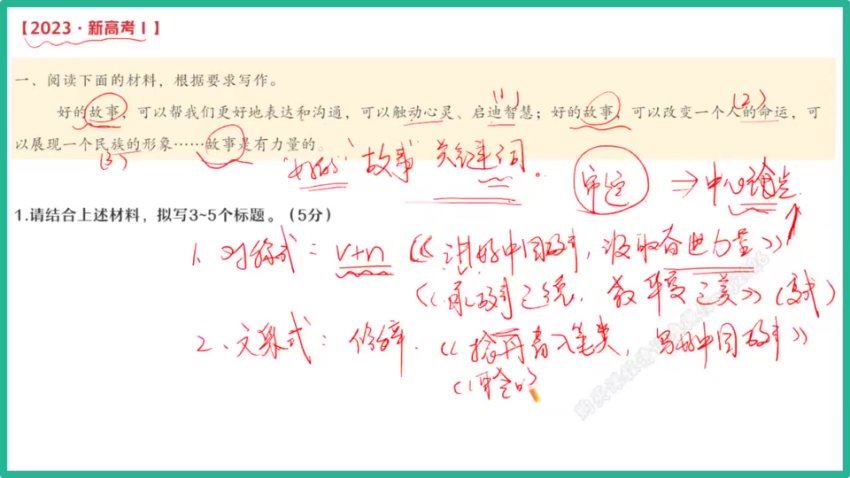 【2023·新高考Ⅰ】
一、阅读下面的材料，根据要求写作。
好的故事，可以帮我们更好地表达和沟通，可以触动心灵、启迪智慧；好的故事，可以改变一个人的命运，可
以展现一个民族的形象……故事是有力量的。
(1)
(2)
(3)
"好的" "故事" 关键词。
审题 ⇒ 中心论点
1.请结合上述材料，拟写3~5个标题。（5分）
1、对称式：v+n 《讲好中国故事，汲取奋进力量》
《承故事之魂，之美》
2、文采式：修辞.《丹青入笔类，写好中国故事》